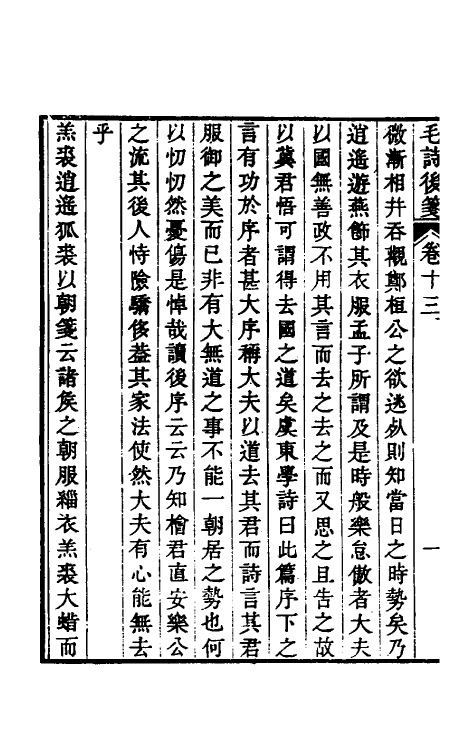 毛詩後箋 卷十三 一
微漸相幷吞觀鄭桓公之欲逃死則知當日之時勢矣乃
逍遙遊燕飾其衣服孟子所謂及是時般樂怠傲者大夫
以國無善政不用其言而去之去之而又思之且告之故
以冀君悟可謂得去國之道矣虞東學詩曰此篇序下之
言有功於序者甚大序稱大夫以道去其君而詩言其君
服御之美而已非有大無道之事不能一朝居之勢也何
以忉忉然憂傷是悼哉讀後序云云乃知檜君直安樂公
之流其後人恃險驕侈葢其家法使然大夫有心能無去
乎
羔裘逍遙狐裘以朝箋云諸矦之朝服緇衣羔裘大蜡而